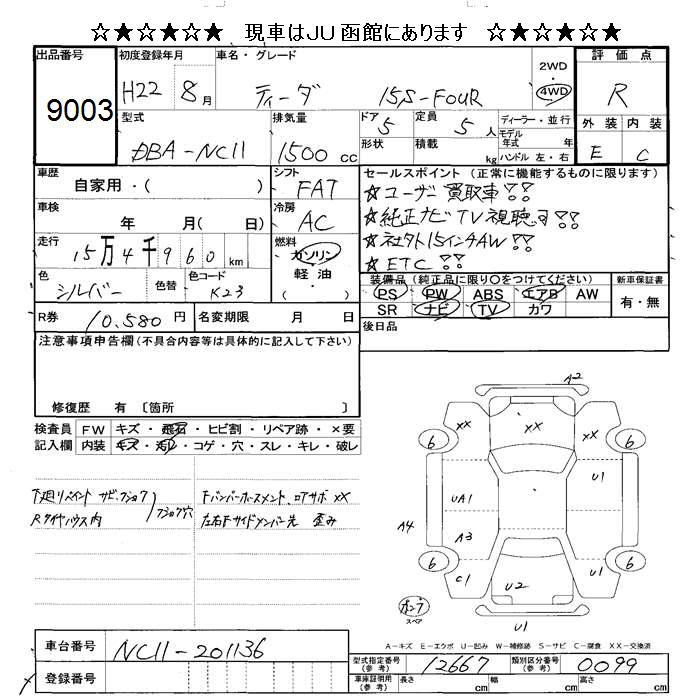 ☆★☆★☆★ 現車はJU函館にあります ☆★☆★☆★
出品番号 初度登録年月 車名・グレード 2WD 評価点
9003 H22 8月 ティーダ 15S-FOUR 4WD R
型式 排気量 ドア 定員 ディーラー・並行 外装 内装
DBA-NC11 1500cc 5 5人 モデル年式 年 E C
形状 積載 kg ハンドル 左・右
車歴 シフト セールスポイント(正常に機能するものに限ります)
自家用・( ) FAT ☆ユーザー買取車!!
車検 冷房 ☆純正ナビTV視聴
年 月( 日) AC ☆社外15インチAW!!
走行 燃料 ☆ETC!!
15万4千960km ガソリン 軽油 ・( )
色 色替 色コード 装備品(純正品に限り○をつけてください) 新車保証書
シルバー K23 PS PW ABS エアB AW 有・無
SR ナビ TV カワ
R券 10,580円 名変期限 月 日 後日品
注意事項申告欄(不具合内容等は具体的に記入して下さい)
修復歴 有〔箇所 〕
検査員 FW キズ・飛石・ヒビ割・リペア跡・×要
記入欄 内装 キズ・汚レ・コゲ・穴・スレ・キレ・破レ
下廻リペイント サビ、フショク Fバンパーホースメント、ロアサポ XX
Rタイヤハウス内 フショク穴 左右Fサイドメンバー先 歪み
A2
XX XX XX
6 6
UA1 U1
A4 A3
6 6
C1 U2 U1
ポンプ
スペア
U1
A-キズ E-エクボ U-凹み W-補修跡 S-サビ C-腐食 XX-交換済
車台番号 NC11-201136
登録番号
型式指定番号(参考) 12667 類別区分番号(参考) 0099
車庫証明用(参考) 長さ cm 幅 cm 高さ cm